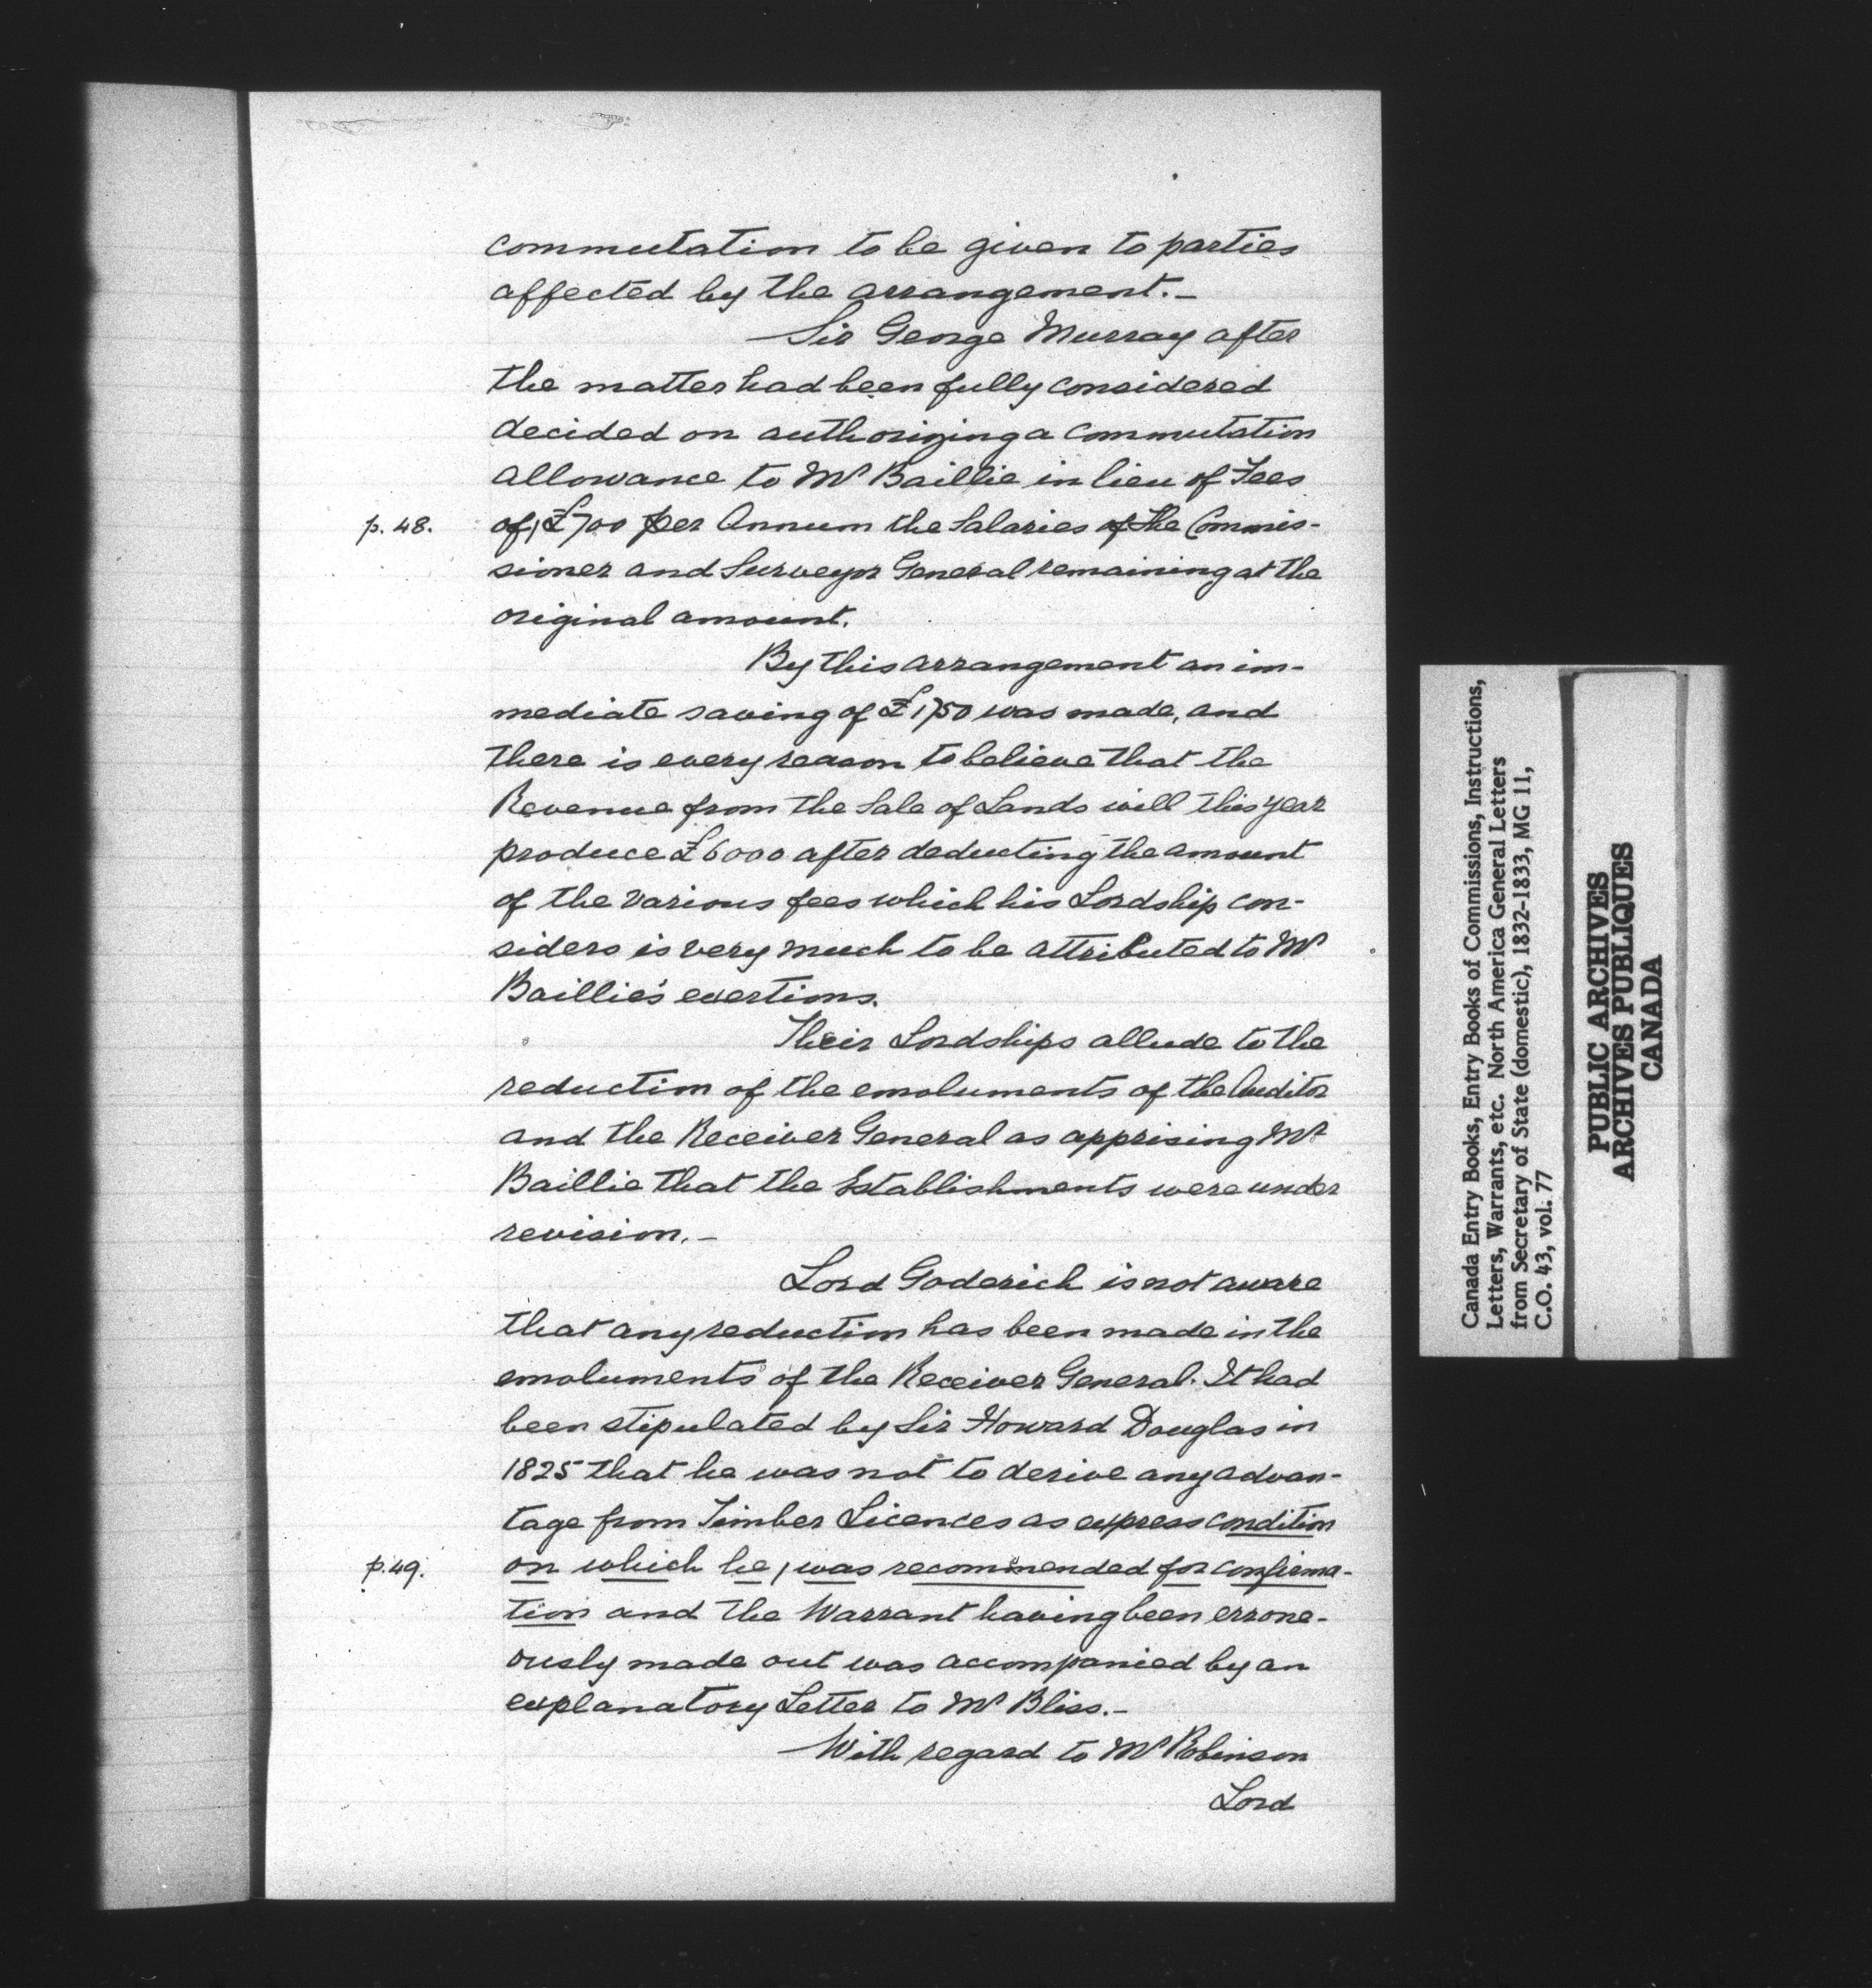 commutation to be given to parties
affected by the arrangement.-
Sir George Murray after
the matter had been fully considered
decided on authorizing a commutation
allowance to Mr Baillie in lieu of Fees
p. 48. of, £700 per Annum the Salaries of the Commis-
sioner and Surveyor General remaining at the
original amount.
By this arrangement an im-
mediate saving of £1750 was made, and
there is every reason to believe that the
Revenue from the Sale of Lands will this year
produce £6000 after deducting the amount
of the various fees which his Lordship con-
siders is very much to be attributed to Mr
Baillie's exertions.
Their Lordships allude to the
reduction of the emoluments of the Auditor
and the Receiver General as apprising Mr
Baillie that the Establishments were under
revision.-
Lord Goderich is not aware
that any reduction has been made in the
emoluments of the Receiver General. It had
been stipulated by Sir Howard Douglas in
1825 that he was not to derive any advan-
tage from Timber Licences as express condition
p. 49. on which he, was recommended for confirma-
tion and the Warrant having been errone-
ously made out was accompanied by an
explanatory Letter to Mr Bliss.-
With regard to Mr Robinson
Lord
Canada Entry Books, Entry Books of Commissions, Instructions,
Letters, Warrants, etc. North America General Letters
from Secretary of State (domestic), 1832-1833, MG 11,
C.O. 43, vol. 77
PUBLIC ARCHIVES
ARCHIVES PUBLIQUES
CANADA